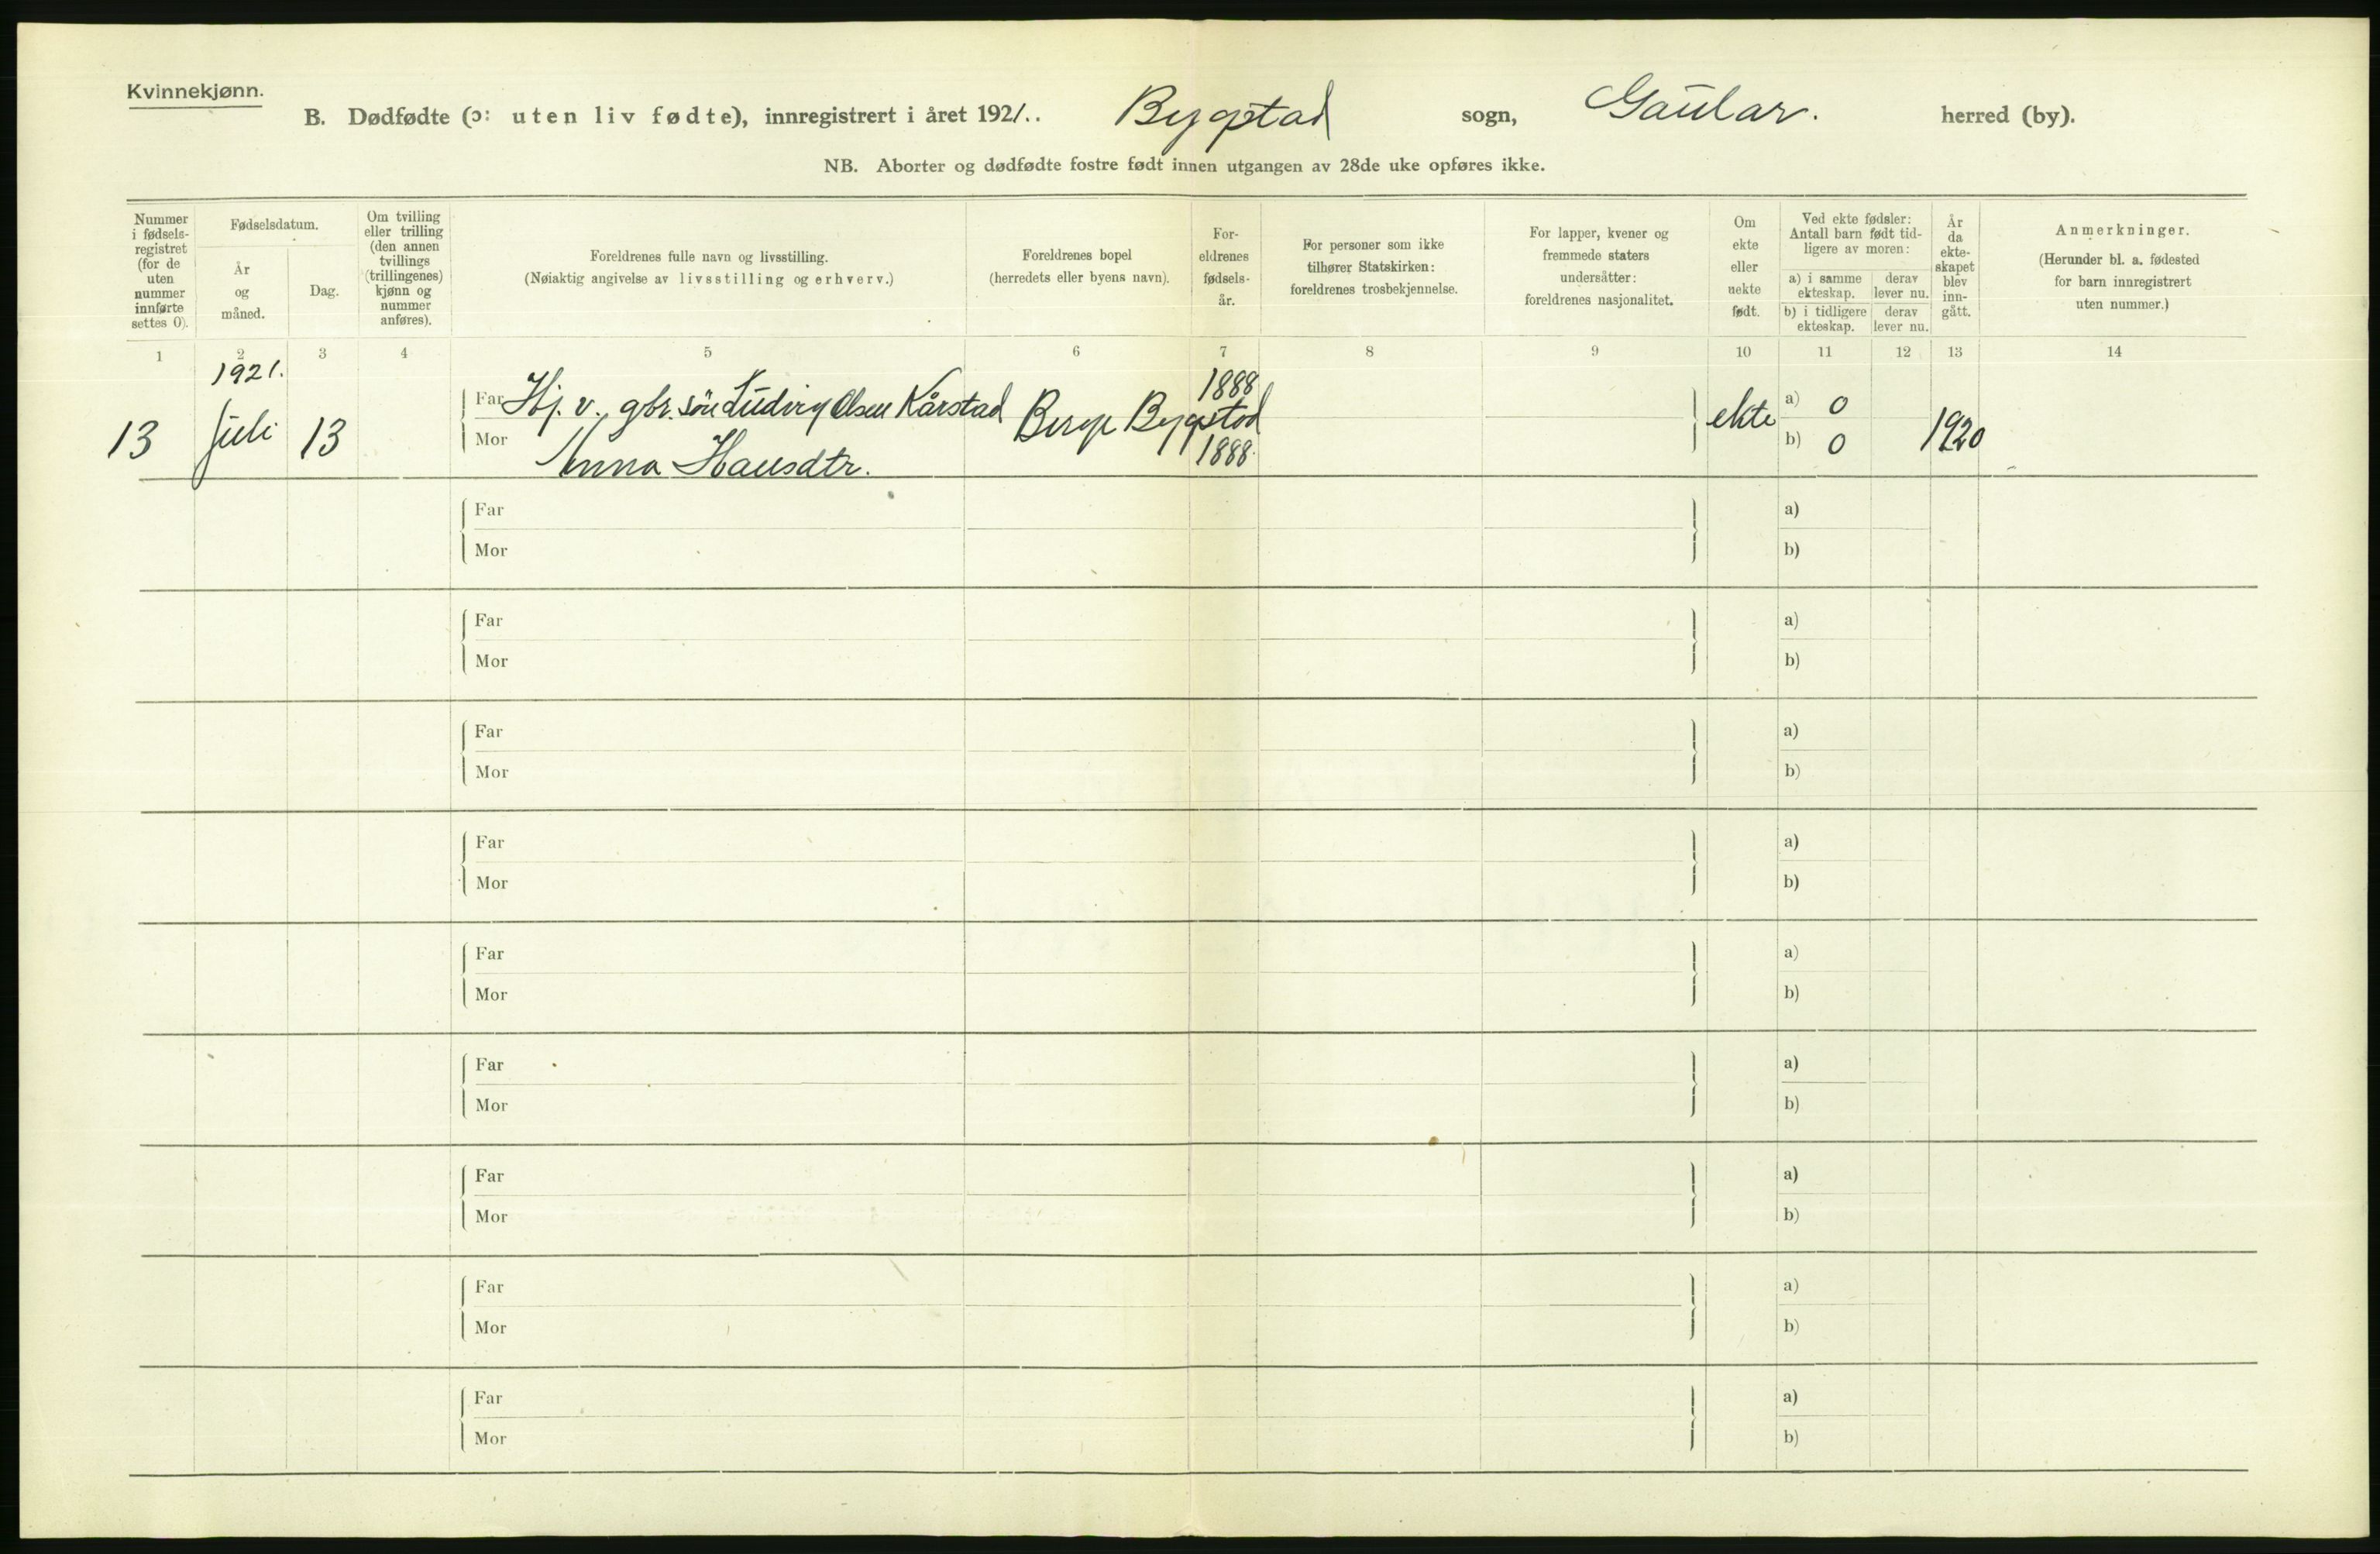 Kvinnekjønn.
B. Dødfødte (ɔ: uten liv fødte), innregistrert i året 1921.. Bygstad sogn, Gaular. herred (by).
NB. Aborter og dødfødte fostre født innen utgangen av 28de uke opføres ikke.
Nummer
i fødsels-
registret
(for de
uten
nummer
innførte
settes 0).
Fødselsdatum.
År
og
måned.
Dag.
Om tvilling
eller trilling
(den annen
tvillings
(trillingenes)
kjønn og
nummer
anføres).
Foreldrenes fulle navn og livsstilling.
(Nøiaktig angivelse av livsstilling og erhverv.)
Foreldrenes bopel
(herredets eller byens navn).
For-
eldrenes
fødsels-
år.
For personer som ikke
tilhører Statskirken:
foreldrenes trosbekjennelse.
For lapper, kvener og
fremmede staters
undersåtter:
foreldrenes nasjonalitet.
Om
ekte
eller
uekte
født.
Ved ekte fødsler:
Antall barn født tid-
ligere av moren:
a) i samme
ekteskap.
derav
lever nu.
b) i tidligere
ekteskap.
derav
lever nu.
År
da
ekte-
skapet
blev
inn-
gått.
Anmerkninger.
(Herunder bl. a. fødested
for barn innregistrert
uten nummer.)
1 2 3 4 5 6 7 8 9 10 11 12 13 14
1921.
13 Juli 13
Far Hj. v., gbr. sön Ludvig Olsen Kårstad
Mor Anna Hansdtr.
Berge Bygstad
1888
1888.
ekte
a) 0
b) 0
1920
Far a)
Mor b)
Far a)
Mor b)
Far a)
Mor b)
Far a)
Mor b)
Far a)
Mor b)
Far a)
Mor b)
Far a)
Mor b)
Far a)
Mor b)
Far a)
Mor b)